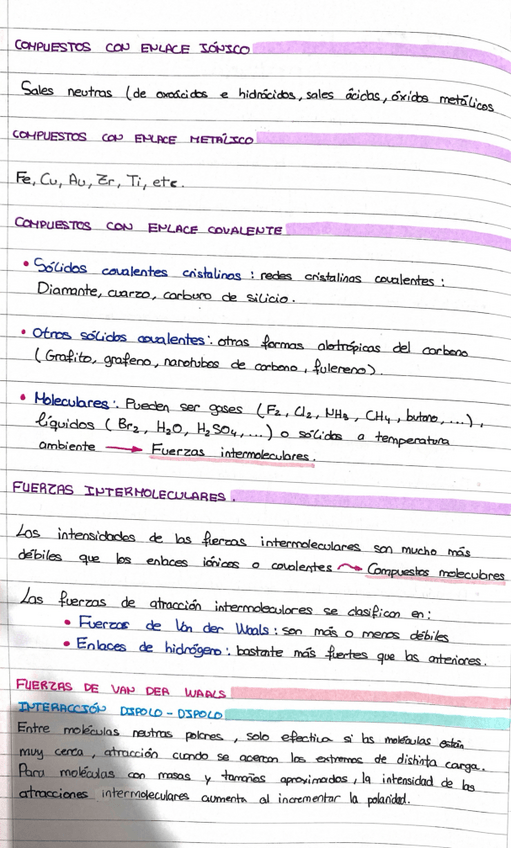 COMPUESTOS CON ENLACE IÓNICO
Sales neutras (de oxoácidos e hidrácidos, sales ácidas, óxidos metálicos
COMPUESTOS CON ENLACE METÁLICO
Fe, Cu, Au, Zr, Ti, etc.
COMPUESTOS CON ENLACE COVALENTE
• Sólidos covalentes cristalinos: redes cristalinas covalentes:
Diamante, cuarzo, carburo de silicio.
• Otros sólidos covalentes: otras formas alotrópicas del carbono
(Grafito, grafeno, nanotubos de carbono, fulereno).
• Moleculares: Pueden ser gases (F₂, Cl₂, NH₃, CH₄, butano, ...),
líquidos (Br₂, H₂O, H₂SO₄, ...) o sólidos a temperatura
ambiente → Fuerzas intermoleculares.
FUERZAS INTERMOLECULARES.
Las intensidades de las fuerzas intermoleculares son mucho más
débiles que los enlaces iónicos o covalentes → Compuestos moleculares
Las fuerzas de atracción intermoleculares se clasifican en:
• Fuerzas de Van der Waals: son más o menos débiles
• Enlaces de hidrógeno: bastante más fuertes que las anteriores.
FUERZAS DE VAN DER WAALS
INTERACCIÓN DIPOLO-DIPOLO
Entre moléculas neutras polares, solo efectiva si las moléculas están
muy cerca, atracción cuando se acercan los extremos de distinta carga.
Para moléculas con masas y tamaños aproximados, la intensidad de las
atracciones intermoleculares aumenta al incrementar la polaridad.